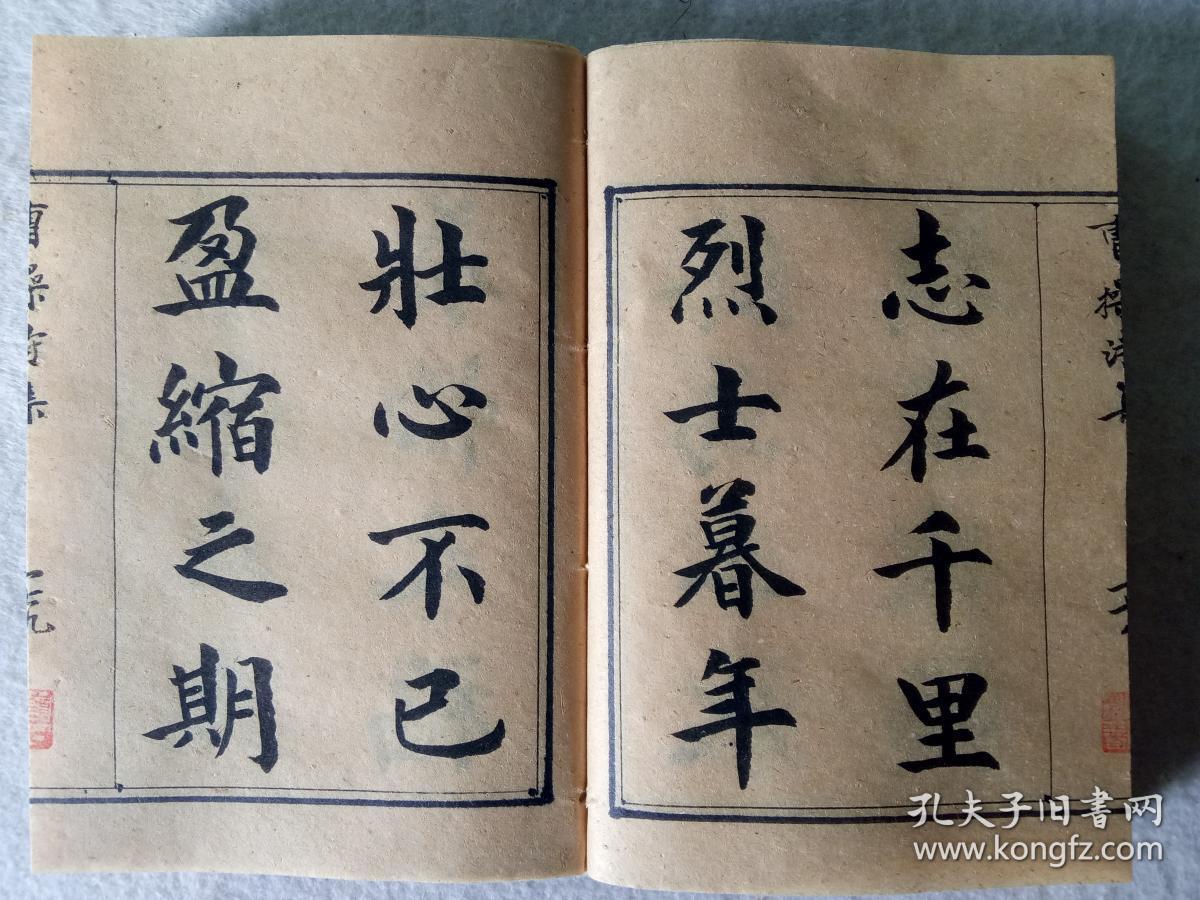 志在千里
烈士暮年
壯心不已
盈縮之期
曹操诗集
孔夫子旧书网
www.kongfz.com